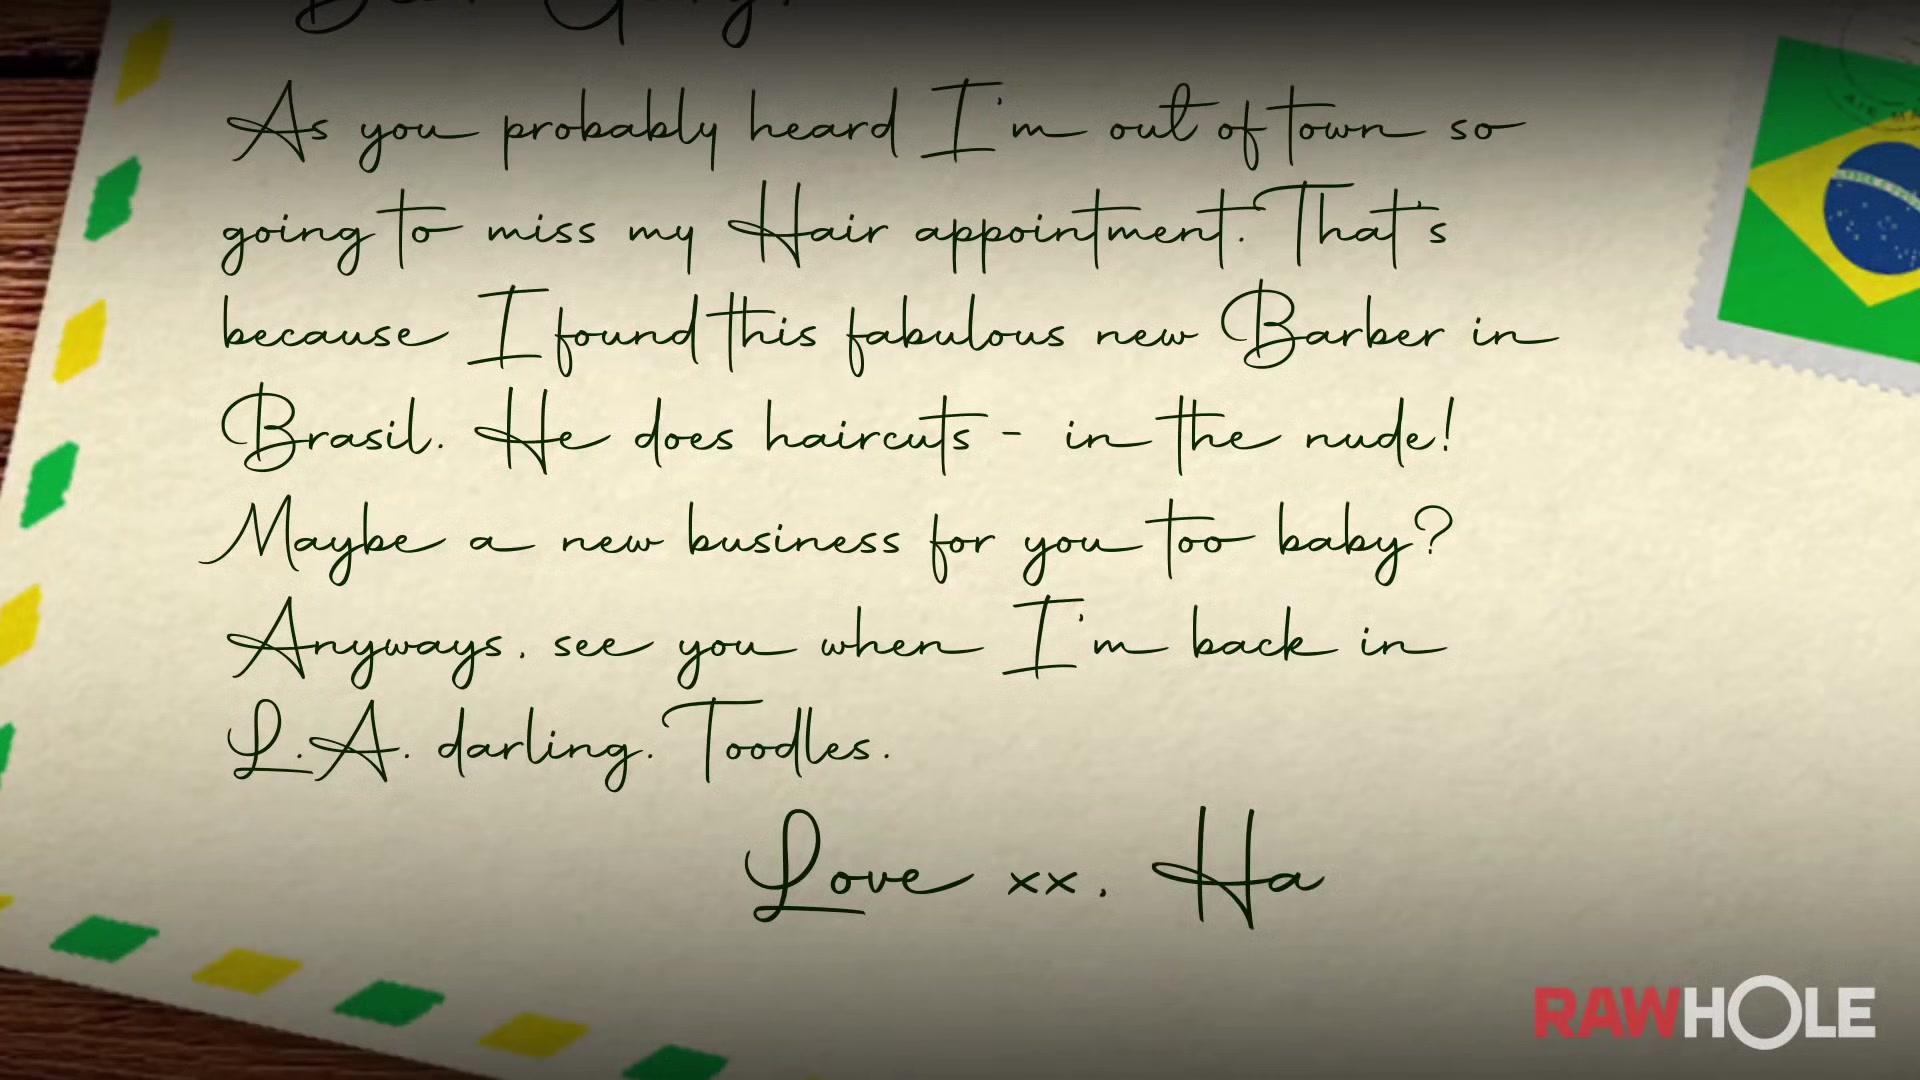 As you probably heard I'm out of town so
going to miss my Hair appointment. That's
because I found this fabulous new Barber in
Brasil. He does haircuts - in the nude!
Maybe a new business for you too baby?
Anyways, see you when I'm back in
L.A. darling. Toodles.
Love xx, Ha
RAWHOLE